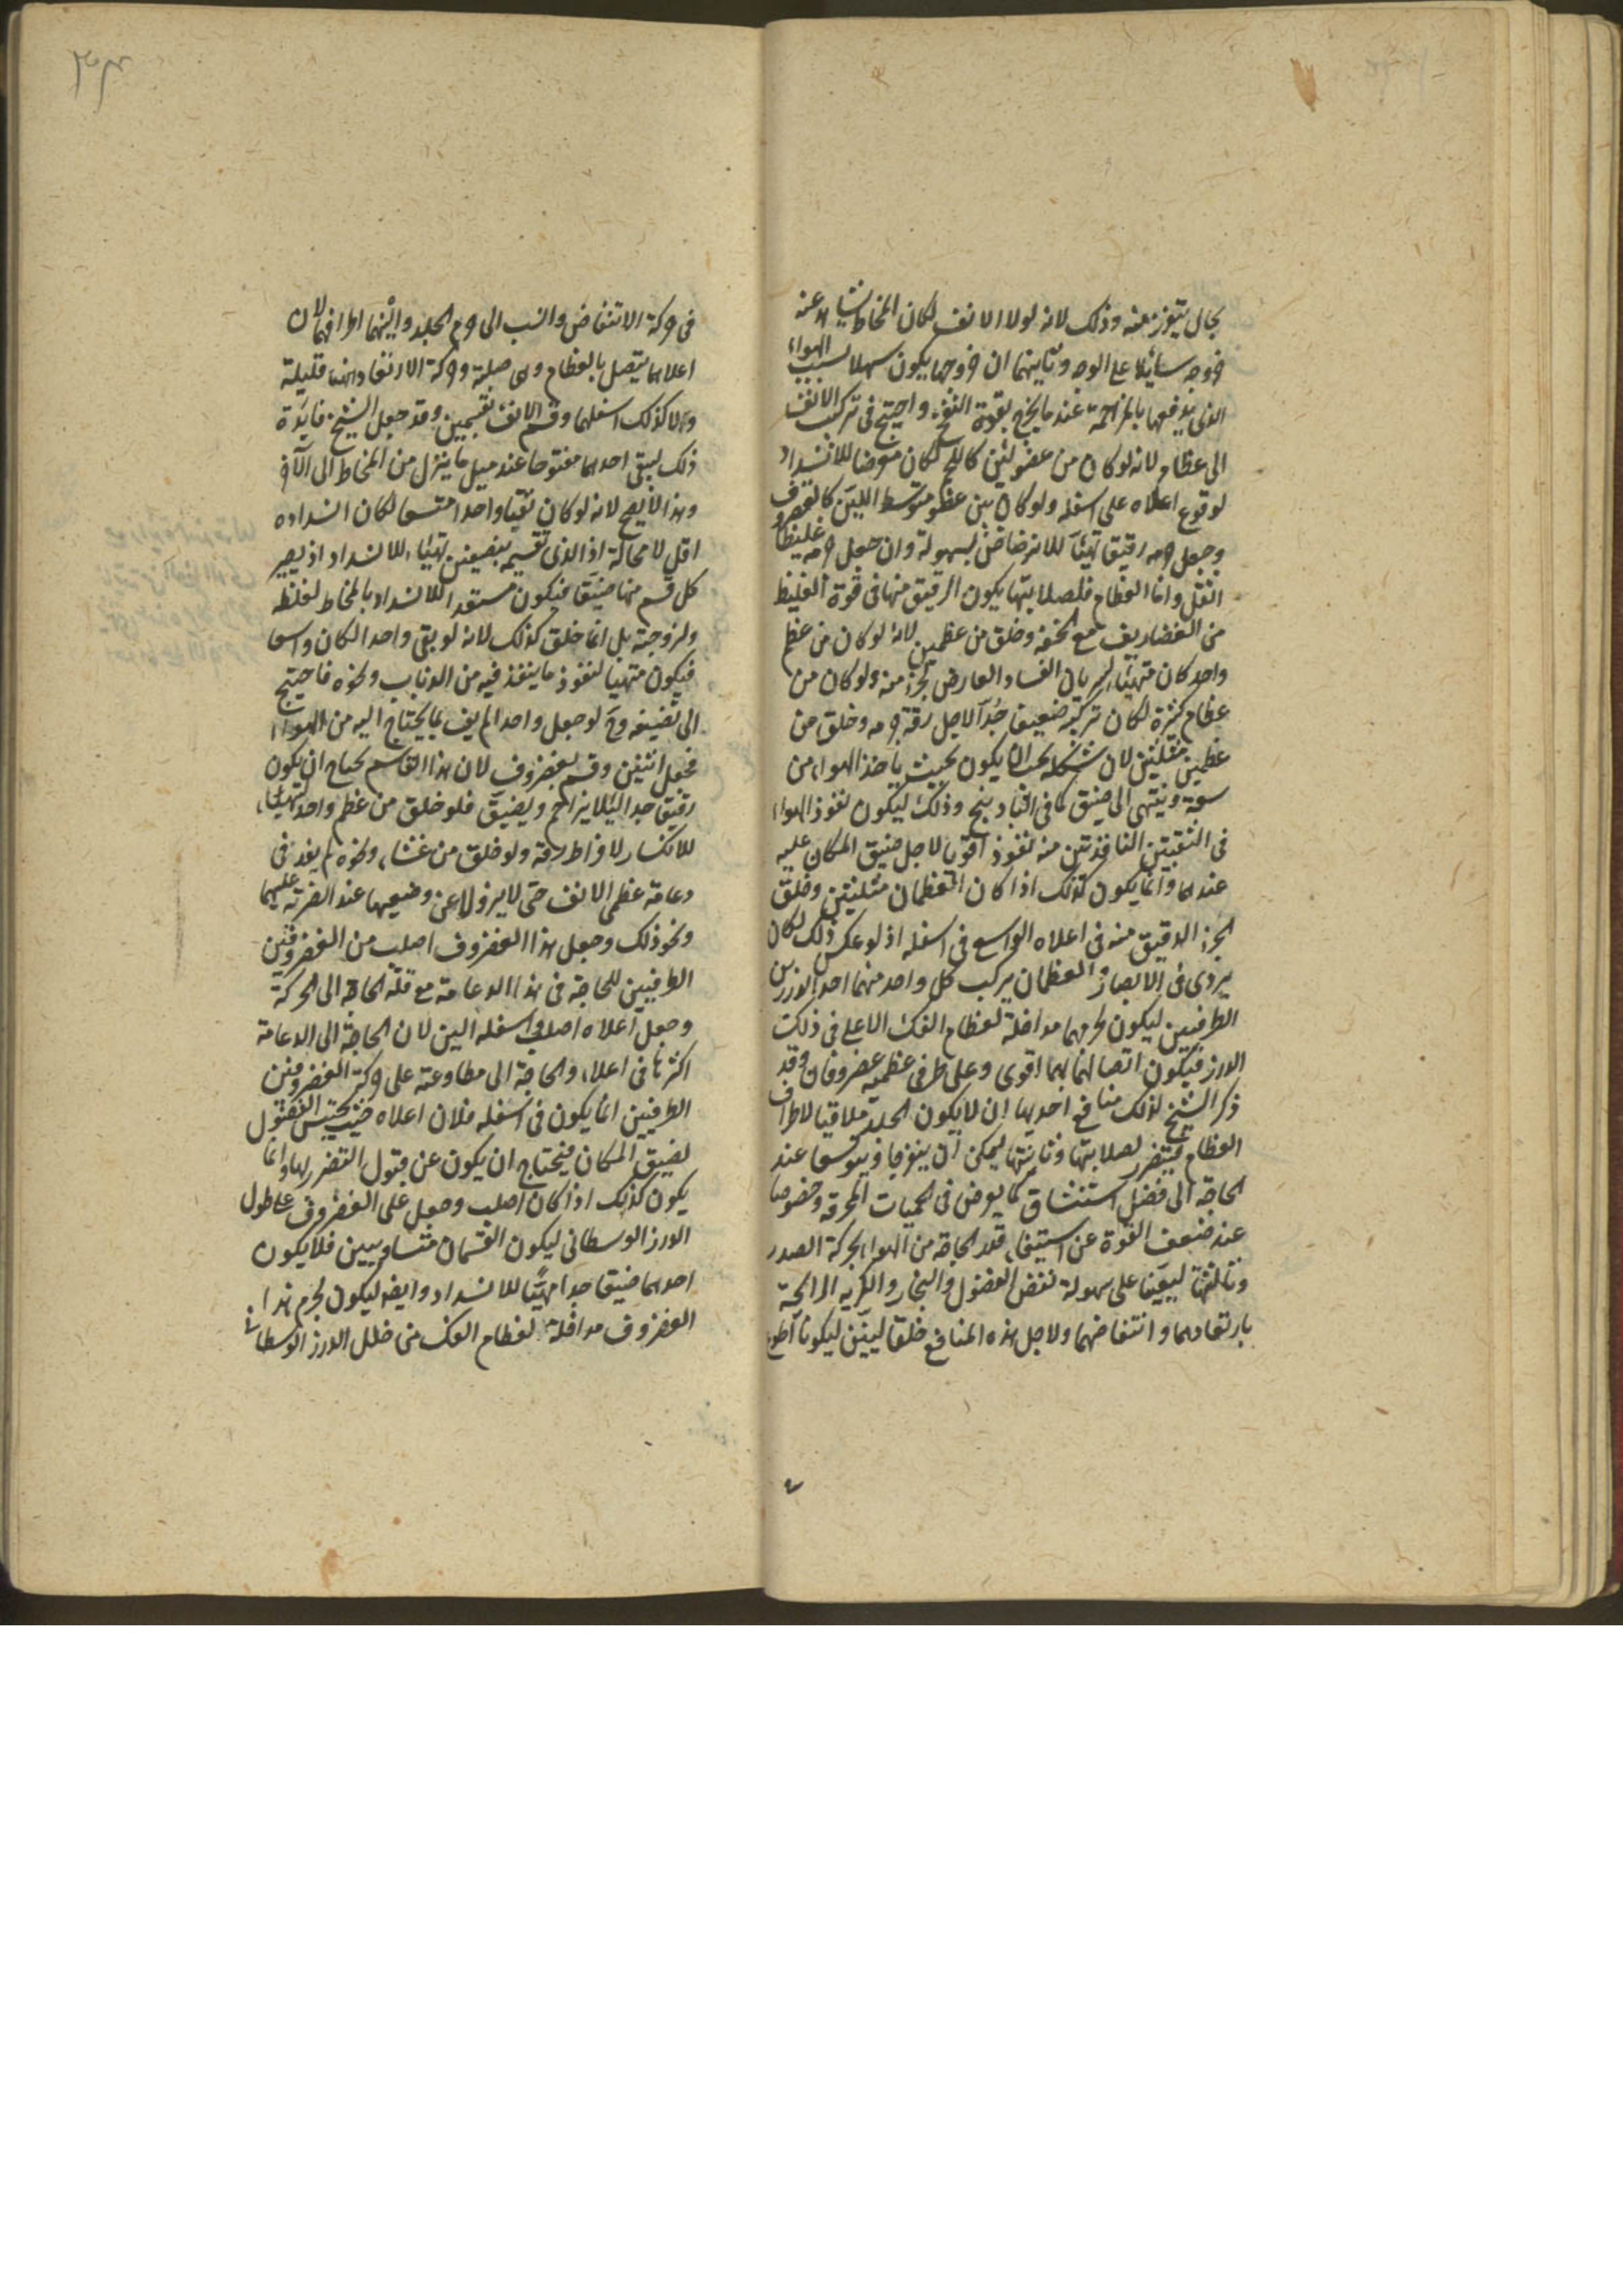 بحال يتقزز منه وذلك لانه لولا الانف لكان المخاط يشاهد عند
خروجه سائلا على الوجه وثانيتهما ان خروجهما يكون سهلا بسبب الهواء
الذى يدفعها بالمزاحمة عند ما يخرج بقوة النفخ واحتيج فى تركيب الانف
الى عظام لانه لو كان من عضو لين كاللحم لكان معرضا للانسداد
لوقوع اعلاه على اسفله ولو كان من عضو متوسط اللين كالغضروف
وجعل جرمه رقيق تهيأ للانرضاض بسهولة وان جعل جرمه غليظا
اثقل واما العظام فلصلابتها يكون الرقيق منها فى قوة الغليظ
من الغضاريف مع الخفة وخلق من عظمين لانه لو كان من عظم
واحد كان متهيئا لسريان الفساد العارض لجزء منه ولو كان من
عظام كثيرة لكان تركيبه ضعيفا جدا لاجل رقة جرمه وخلق من
عظمين مثلثين لان شكله يجب ان يكون بحيث ياخذ الهواء من
سعة وينتهى الى ضيق كما فى البادهنج وذلك ليكون نفوذ الهواء
فى الثقبتين النافذتين منه نفوذ اقويا لاجل ضيق المكان عليه
عندهما وانما يكون كذلك اذا كان العظمان مثلثين وخلق
الجزء الدقيق منه فى اعلاه الواسع فى اسفله اذ لو عكس ذلك لكان
يردى فى الابصار والعظمان يركب كل واحد منهما احد الدرزين
الطرفيين ليكون لجرمهما مداخلة لعظام الفك الاعلى فى ذلك
الدرز فيكون اتصالهما بهما اقوى وعلى طرفى عظميه غضروفان وقد
ذكر الشيخ لذلك منافع احديها ان لا يكون الجلد ملاقيا لاطراف
العظام فيتضرر لصلابتها وثانيتها ليمكن ان ينفرجا ويتوسعا عند
الحاجة الى فضل استنشاق كما يعرض فى الحميات المحرقة وخصوصا
عند ضعف القوة عن استيفاء قدر الحاجة من الهواء بحركة الصدر
وثالثتها ليعينا على سهولة نفض الفضول والبخار والكريه الرائحة
بارتعادهما وانتفاضهما ولاجل هذه المنافع خلقا لينين ليكونا اطوع
فى حركة الانتفاض وانسب الى جرم الجلد والينهما اطرافهما لان
اعلاهما يتصل بالعظام وهى صلبة وحركة الارتعاد هناك قليلة
ولا كذلك اسفلهما وقسم الانف بقسمين وقد جعل الشيخ فائدة
ذلك ليبقى احدهما مفتوحا عند ميل ما ينزل من المخاط الى الآخر
وهذا لا يصح لانه لو كان ثقبا واحدا متسعا لكان انسداده
اقل لا محالة اذ الذى تقسيمه بنصفين تهيئا للانسداد اذ يصير
كل قسم منها ضيقا فيكون مستعدا للانسداد بالمخاط لغلظه
ولزوجته بل انما خلق كذلك لانه لو بقى واحدا لكان واسعا
فيكون متهيئا لنفوذ ما ينفذ فيه من الذباب ونحوه فاحتيج
الى تضييقه وح لو جعل واحدا لم يف بما يحتاج اليه من الهواء
فجعل اثنين وقسم بغضروف لان هذا القاسم يحتاج ان يكون
رقيق جدا لئلا يزاحم ويضيق فلو خلق من عظم واحد لتهيأ
للانكسار لافراط رقته ولو خلق من غشاء ونحوه لم يفد فى
دعامة عظمى الانف حتى لا يزولا عن وضعهما عند الضربة عليهما
ونحو ذلك وجعل هذا الغضروف اصلب من الغضروفين
الطرفيين للحاجة فى هذا الى الدعامة مع قلة الحاجة الى الحركة
وجعل اعلاه اصلب واسفله الين لان الحاجة الى الدعامة
اكثرها فى اعلاه والحاجة الى مطاوعته على حركة الغضروفين
الطرفيين انما يكون فى اسفله فلان اعلاه حيث يحتبس الفضول
لضيق المكان فيحتاج ان يكون عن قبول التضرر بها وانما
يكون كذلك اذا كان اصلب وجعل على الغضروف على طول
الدرز الوسطانى ليكون القسمان متساويين فلا يكون
احدهما ضيقا جدا مهيئا للانسداد وايضا ليكون لجرم هذا
الغضروف مداخلة لعظام الفك من خلل الدرز الوسطانى